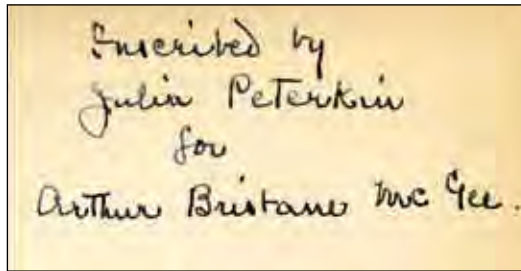 Inscribed by
Julia Peterkin
for
Arthur Brisbane McGee.